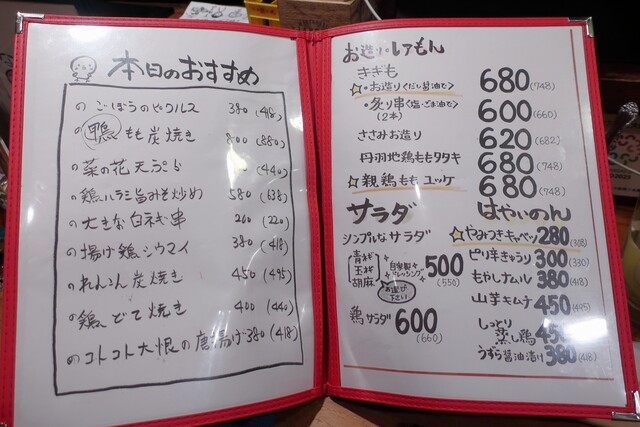 本日のおすすめ
の ごぼうのピクルス 380 (418)
の 鴨もも炭焼き 800 (880)
の 菜の花天ぷら (440)
の 鶏ハラミ旨みそ炒め 580 (638)
の 大きな白ネギ串 200 (220)
の 揚げ鶏シウマイ 380 (418)
の れんこん炭焼き 450 (495)
の 鶏どて焼き 400 (440)
のコトコト大根の唐揚げ 380 (418)
お造り・レアもん
きぎも
☆・お造り<だし醤油で> 680 (748)
・炙り串<塩・ごま油で> 600 (660)
(2本)
ささみお造り 620 (682)
丹羽地鶏ももタタキ 680 (748)
☆親鶏ももユッケ 680 (748)
サラダ
シンプルなサラダ 500 (550)
青ネギ
玉ネギ
胡麻
自家製ドレッシング
お選び下さい
鶏サラダ 600 (660)
はやいのん
☆やみつきキャベツ 280 (308)
ピリ辛きゅうり 300 (330)
もやしナムル 380 (418)
山芋キムチ 450 (495)
しっとり蒸し鶏 45
うずら醤油漬け 380 (418)